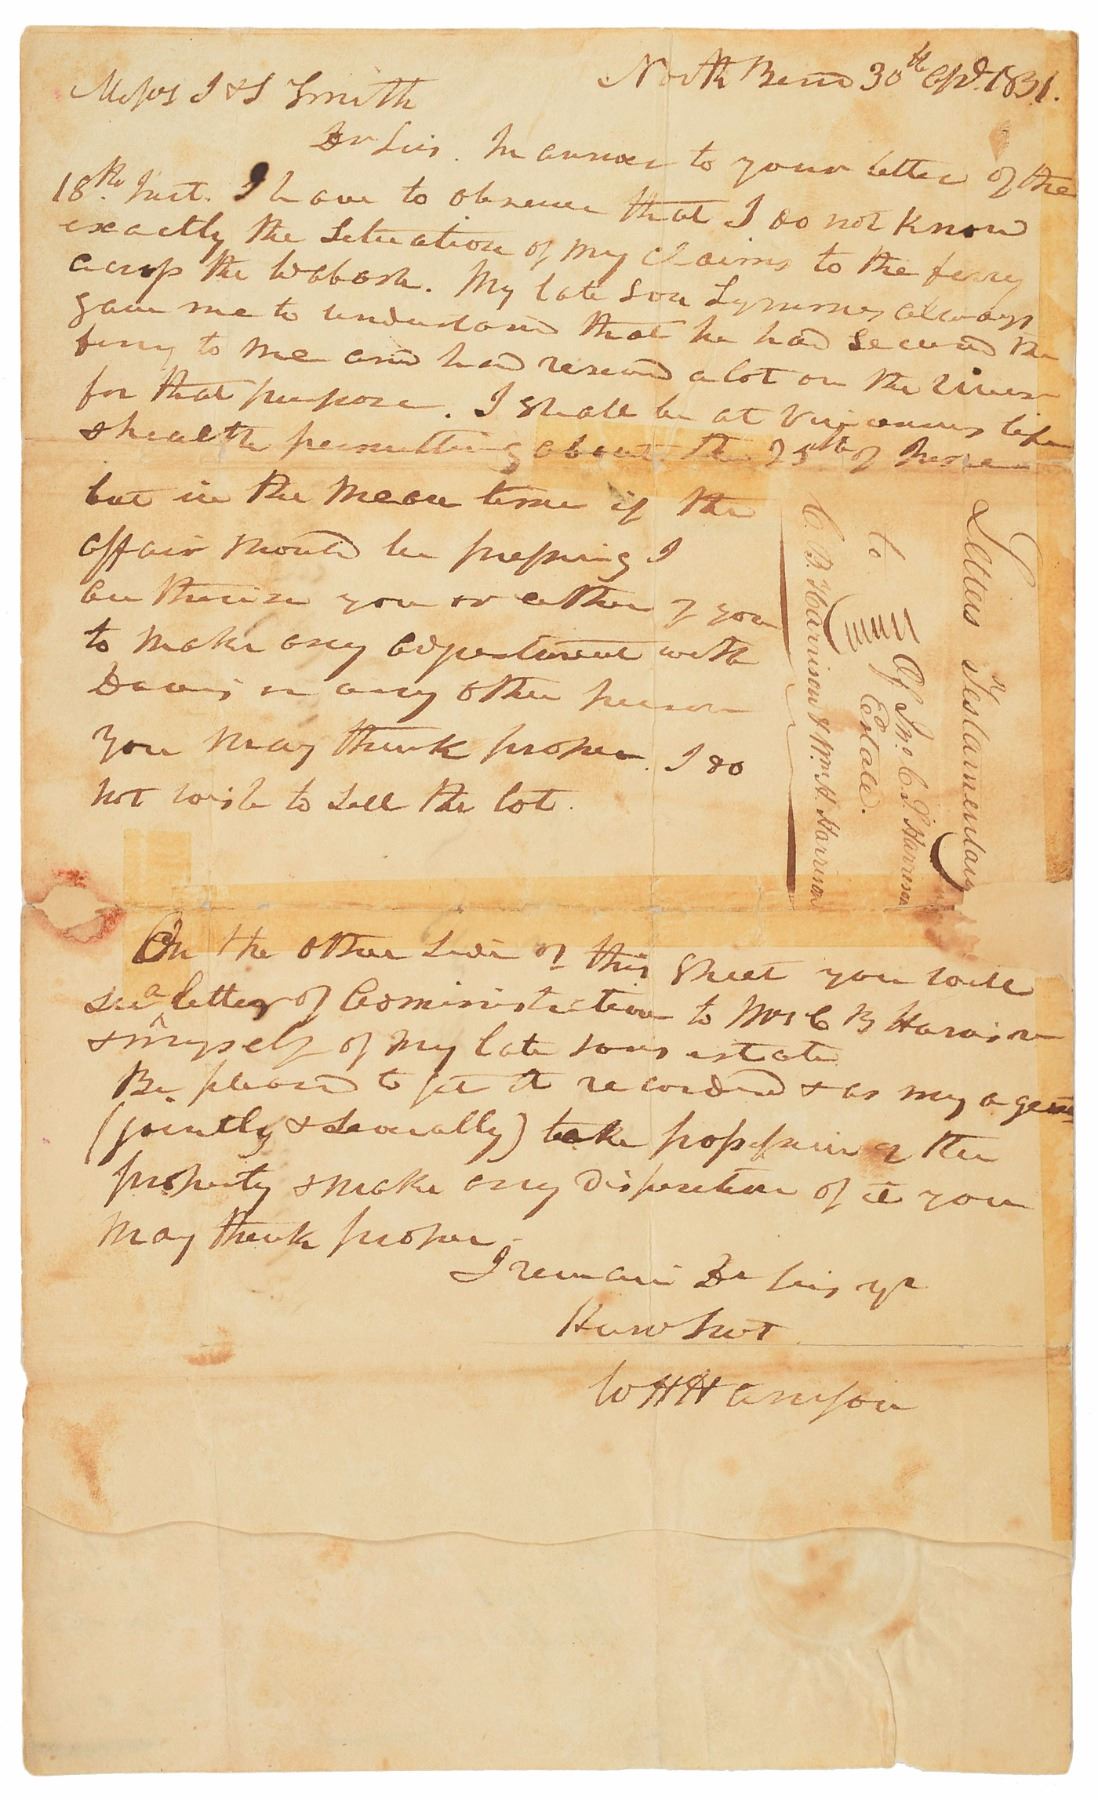 North Bend 30th Apl. 1831.
Messrs J & S Smith
Dr Sirs. In answer to your letter of the
18th Inst. I have to observe that I do not know
exactly the Situation of my claims to the ferry
across the Wabash. My late son Symmes always
gave me to understand that he had secured the
ferry to me and had reserved a lot on the River
for that purpose. I shall be at Vincennes life
& health permitting about the 25th of
but in the mean time if the
affair should be pressing I
authorise you or either of you
to make any adjustment with
Davis or any other person
you may think proper. I do
not wish to sell the lot.
Letters Testamentary
Of Jno. C. S. Harrison
Estate.
to
C. B. Harrison & Wm. H. Harrison
On the other side of this sheet you will
see a letter of Administration to Mrs C B Harrison
& myself of my late sons estate
Be pleased to get it recorded & as my agents
(jointly & severally) take possession of the
property & make any disposition of it you
may think proper.
I remain Dr Sirs yr
Hum Svt
W H Harrison